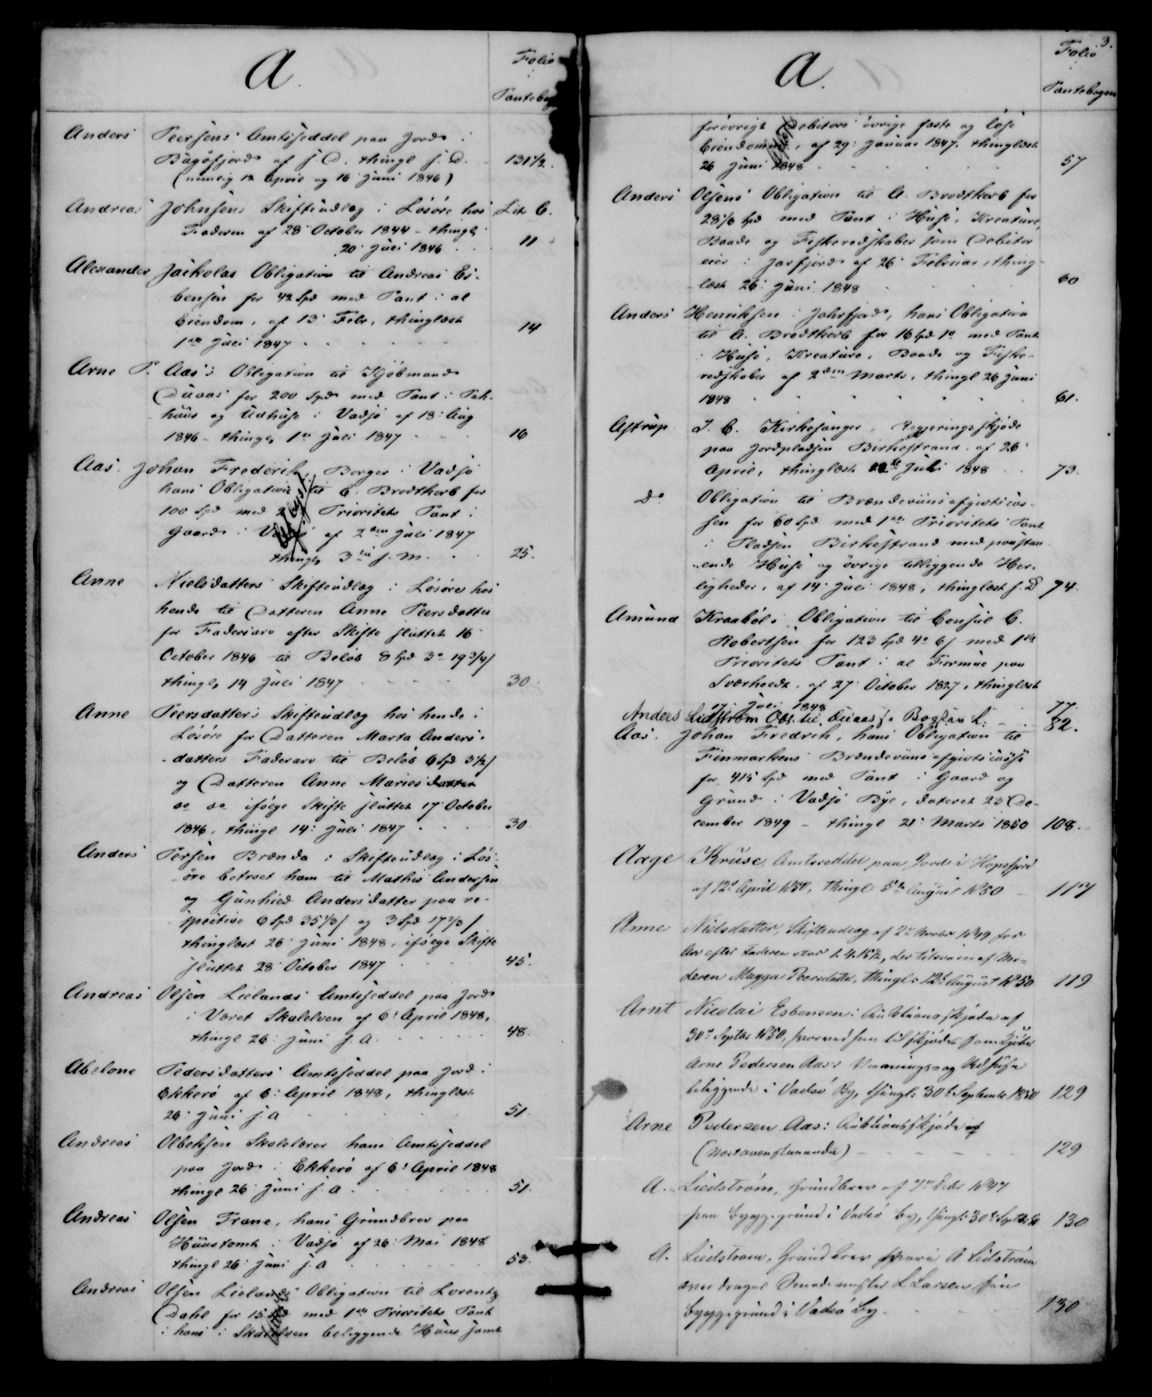 A.
Folio
Pantebog
Anders Peersens Amtsseddel paa Jord i
Bugøfjord af s. D. thingl s. D. 131 1/2.
(nemlig 12 April og 16 Juni 1846)
Andreas Johnsens Skifteudlæg i Løsøre hos Litr C.
Faderen af 28 October 1844 - thingl
20 Juli 1846 11
Alexander Jaikolas Obligation til Andreas Es-
bensen for 42 Spd med Pant i al
Eiendom, af 13 Febr, thinglæst 14
1ste Juli 1847
Arne P. Aas's Obligation til Kjøbmand
for 200 Spd med Pant i Pak-
huus og Udhuse i Vadsø af 18 Aug
1846 - thingl 1ste Juli 1847 16
Aas. Johan Frederik, Borger i Vadsø
hans Obligation til C. Brodtkorb for
100 Spd med Prioritets Pant i
Gaard i af 2den Juli 1847
thingl 3die s. M. 25.
Anne Nielsdatters Skifteudlæg i Løsøre hos
hende til Datteren Anne Peersdatter
for Faderarv efter Skifte sluttet 16
October 1846 til Beløb 8 Spd 3 19 3/4 ſ
thingl 14 Juli 1847 30.
Anne Peersdatters Skifteudlæg hos hende i
Løsøre for Datteren Marta Anders-
datters Faderarv til Beløb 6 Spd 3 1/2 ſ
og Datteren Anne Maries
ifølge Skifte sluttet 17 October
1846, thingl 14 Juli 1847 30.
Anders Persen Brænda i Skifteudlæg i Løs-
øre betroet ham til Mathis Andersen
og Gunhild Andersdatter paa re-
spective 6 Spd 35 1/3 ſ og 3 Spd 17 2/3 ſ
thinglæst 26 Juni 1848, ifølge Skifte
sluttet 28 October 1847 45.
Andreas Olsen Lielands Amtsseddel paa Jord
i Været Skalelven af 6 April 1848,
thingl 26 Juni s. A. 48.
Abelone Pedersdatters Amtsseddel paa Jord i
Ekkerø af 6 April 1848, thinglæst
26 Juni s. A 51.
Andreas Olbeksen Skolelærer hans Amtsseddel
paa Jord i Ekkerø af 6 April 1848
thingl 26 Juni s. A. 51.
Andreas Olsen Frane, hans Grundbrev paa
Huustomt i Vadsø af 26 Mai 1848
thingl 26 Juni s. A 53.
Andreas Olsen Lielands Obligation til Lorentz
Dahl for 15 Spd med 1ste Prioritets Pant
i hans i Skalelven beliggende Huus samt
3.
A.
Folio
Pantebogen
forøvrigt Debitors øvrige faste og løse
Eiendomme, af 29 Januar 1847. thinglæst
26 Juni 1848 57
Anders Olsens Obligation til A. Brodtkorb for
28 1/2 Spd med Pant i Huse, Kreature,
Baade og Fiskeredskaber som Debitor
eier i Jarfjord af 26 Februar, thing-
læst 26 Juni 1848 60
Anders Henriksen i Jahrfjord, hans Obligation
til A. Brodtkorb for 16 Spd 1 med Pant
i Huse, Kreature, Baade og Fiske-
redskaber af 2den Marts, thingl 26 Juni
1848 61.
Astrup. I. C. Kirkesanger, Regjeringsskjøde
paa Jordpladsen Birkestrand af 26
April, thinglæst Juli 1848 73.
Do Obligation til Brændeviinsafgiftscas-
sen for 60 Spd med 1ste Prioritets Pant
i Pladsen Birkestrand med paastaa-
ende Huse og øvrige tilliggende Her-
ligheder, af 14 Juli 1848, thinglæst s. D 74.
Amund Kraabøls Obligation til Consul C.
Robertsen for 123 Spd 4 6 ſ med 1ste
Prioritets Pant i al Formue paa
Sværholt, af 27 October 1827, thinglæst
Juli 1848 77.
Anders Lidstrøm Obl. til 82.
Aas. Johan Fredrik, hans Obligation til
Finmarkens Brændeviinsafgiftscasse
for 415 Spd med Pant i Gaard og
Grund i Vadsø Bye, dateret 23 De-
cember 1849 - thingl 21 Marts 1850 108.
Aage Kruse, Amtsseddel paa Jord i Hopsfjord
af 12te April 1850, thingl 5te August 1850 117
Anne Nielsdatter, Skifteudlæg af 2den 1849 for
Arv efter Faderen stor 1. 4. 18 1/2, der tilsvares af Mo-
deren Magga Peersdatter, thingl: 12te August 1850 119
Arnt Nicolai Esbensen: Auktionsskjøde af
30te Septbr 1850, hvorved han tilskjødes
Arne Pedersen Aas's Vaanings og Udhuse
beliggende i Vadsø By, thingl: 30te September 1850 129
Arne Pedersen Aas: Auktionsskjøde af
( 129
A. Liedstrøm, Grundbrev af 7de 1847
paa Byggegrund i Vadsø By, thingl: 30te Sept 50 130
A. Liedstrøm, Grundbrev hvori A Lidstrøm
overdrager L. Larsen sin
Byggegrund i Vadsø By. 130